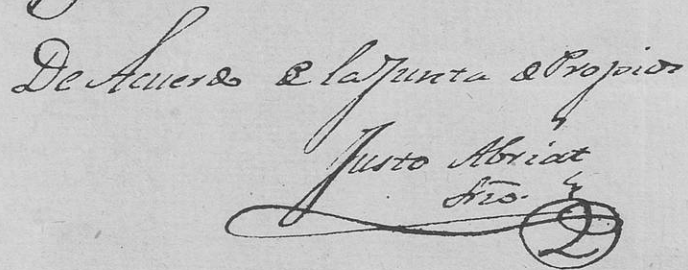 De Acuerdo de la Junta de Propios
Justo Abriat
Srio.
2